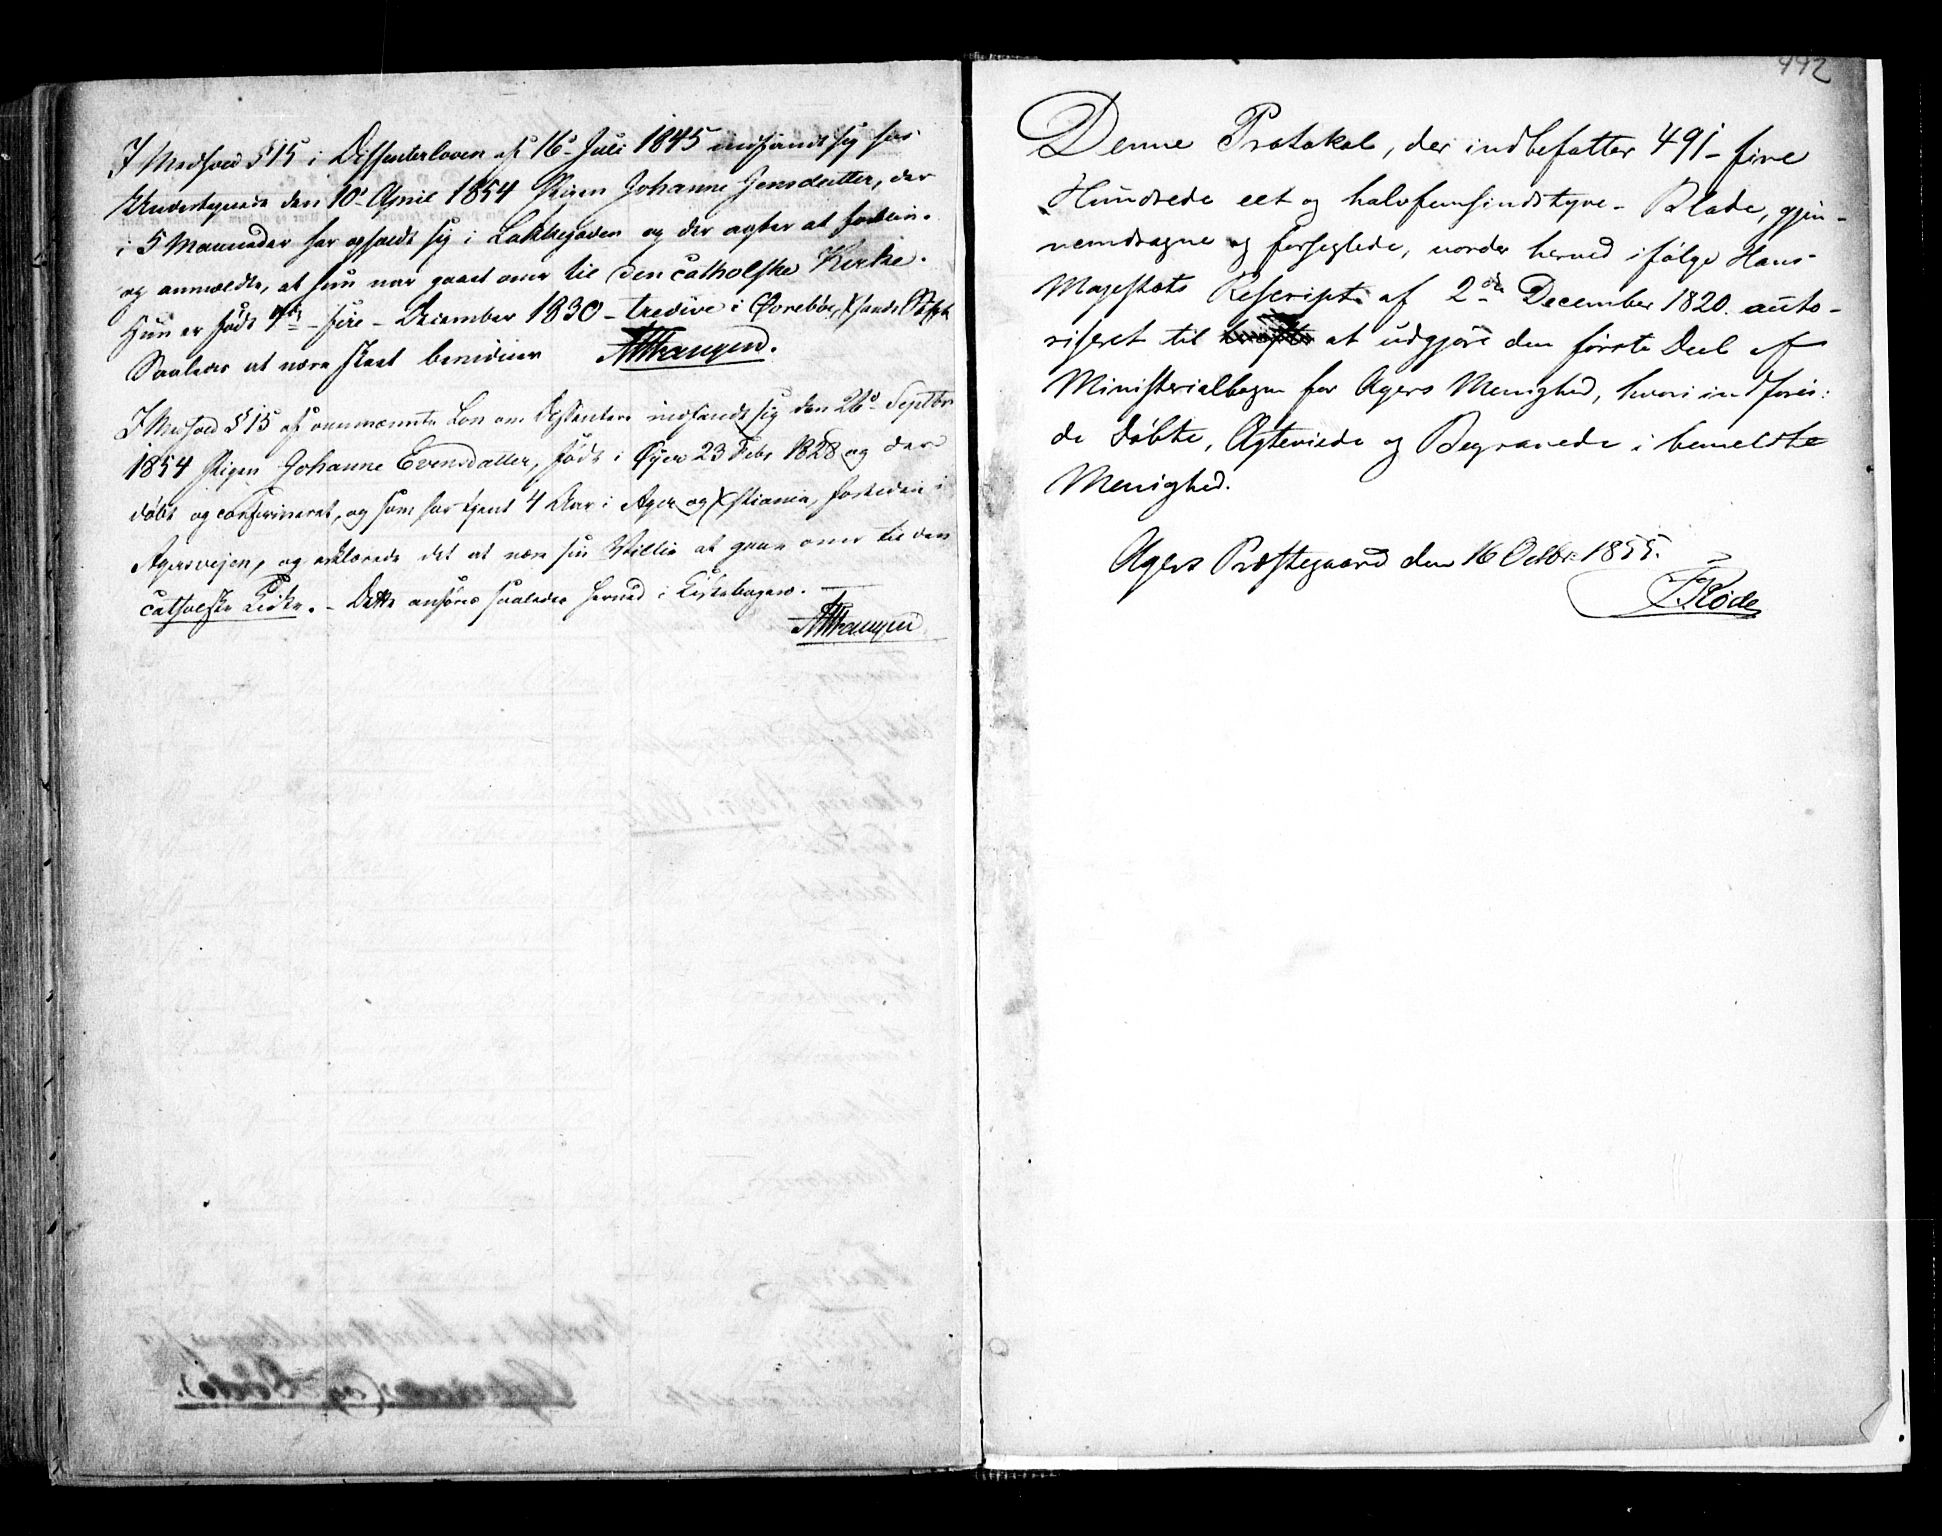 I Medhold § 15 i Dissenterloven af 16de Juli 1845 indfandt sig hos
Undertegnede den 10de April 1854 Pigen Johanne Jensdatter, der
i 5 Maaneder har opholdt sig i Løkkegaden og der agter at forblive
og anmeldte, at hun var gaaet over til den catholske Kirke.
Hun er født 4de - fire - December 1830 - tredive i Øvrebø, Xsands Stift
Saaledes at være skeet bevidner AWFrangen.
I Medhold § 15 af ovennævnte Lov om Dissentere indfandt sig den 26de Septbr
1854 Pigen Johanne Evensdatter, født i Øyer 23 Febr 1828 og der
døbt og confirmeret, og som har tjent 4 Aar i Ager og Xstiania, forleden i
Agersvejen, og erklærede det at være sin Villie at gaae over til den
catholske Kirke. - Dette anføres saaledes herved i Kirkebogen.
AWFrangen
492
Denne Protokol, der indbefatter 491 - fire
Hundrede eet og halvfemsindstyve - Blade, gjen-
nemdragne og forseglede, vorder herved ifølge Hans
Majestæts Rescript af 2den December 1820 auto-
riseret til at udgjøre den første Deel af
Ministerialbogen for Agers Menighed, hvori indføres:
de Døbte, Ægteviede og Begravede i bemeldte
Menighed.
Agers Præstegaard den 16 Octbr 1855.
F. Rode